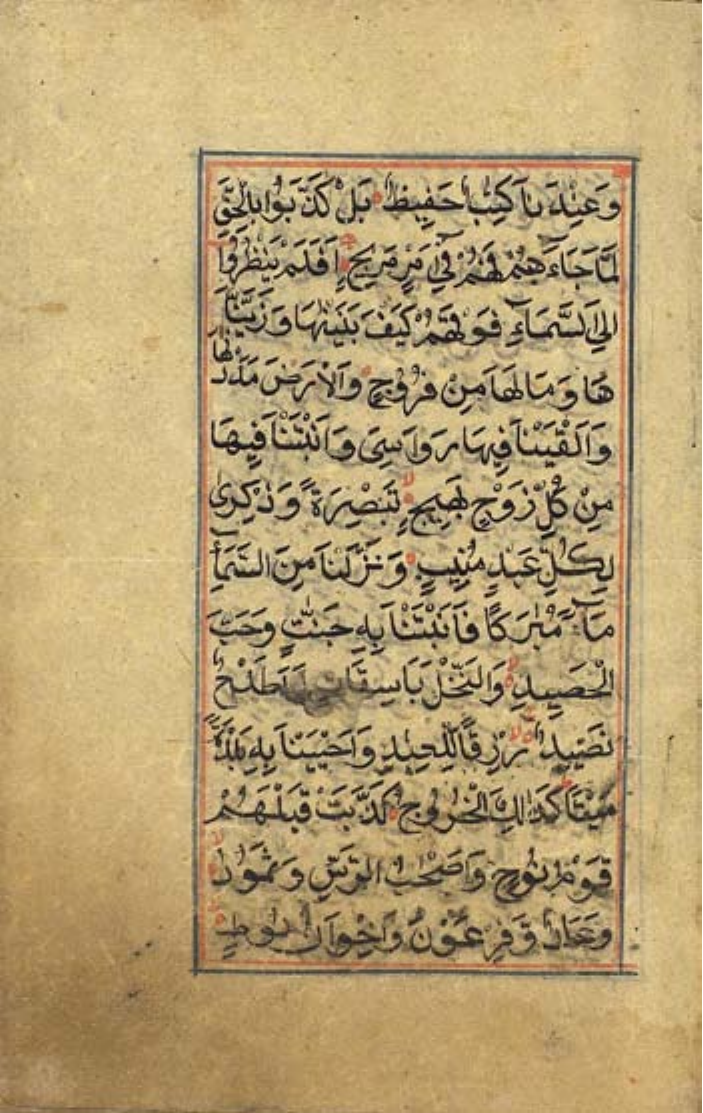 وَعِنْدَنَا كِتٰبٌ حَفِيظٌ بَلْ كَذَّبُوا بِالْحَقِّ
لَمَّا جَاءَهُمْ فَهُمْ فِي اَمْرٍ مَرِيجٍ اَفَلَمْ يَنْظُرُوا
اِلَى السَّمَاءِ فَوْقَهُمْ كَيْفَ بَنَيْنٰهَا وَزَيَّنَّا
هَا وَمَا لَهَا مِنْ فُرُوجٍ وَالْاَرْضَ مَدَدْنٰهَا
وَاَلْقَيْنَا فِيهَا رَوَاسِيَ وَاَنْبَتْنَا فِيهَا
مِنْ كُلِّ زَوْجٍ بَهِيجٍ تَبْصِرَةً وَذِكْرٰى
لِكُلِّ عَبْدٍ مُنِيبٍ وَنَزَّلْنَا مِنَ السَّمَاءِ
مَاءً مُبٰرَكًا فَاَنْبَتْنَا بِهِ جَنّٰتٍ وَحَبَّ
الْحَصِيدِ وَالنَّخْلَ بَاسِقَاتٍ لَهَا طَلْعٌ
نَضِيدٌ رِزْقًا لِلْعِبَادِ وَاَحْيَيْنَا بِهِ بَلْدَةً
مَيْتًا كَذٰلِكَ الْخُرُوجُ كَذَّبَتْ قَبْلَهُمْ
قَوْمُ نُوحٍ وَاَصْحٰبُ الرَّسِّ وَثَمُودُ
وَعَادٌ وَفِرْعَوْنُ وَاِخْوَانُ لُوطٍ